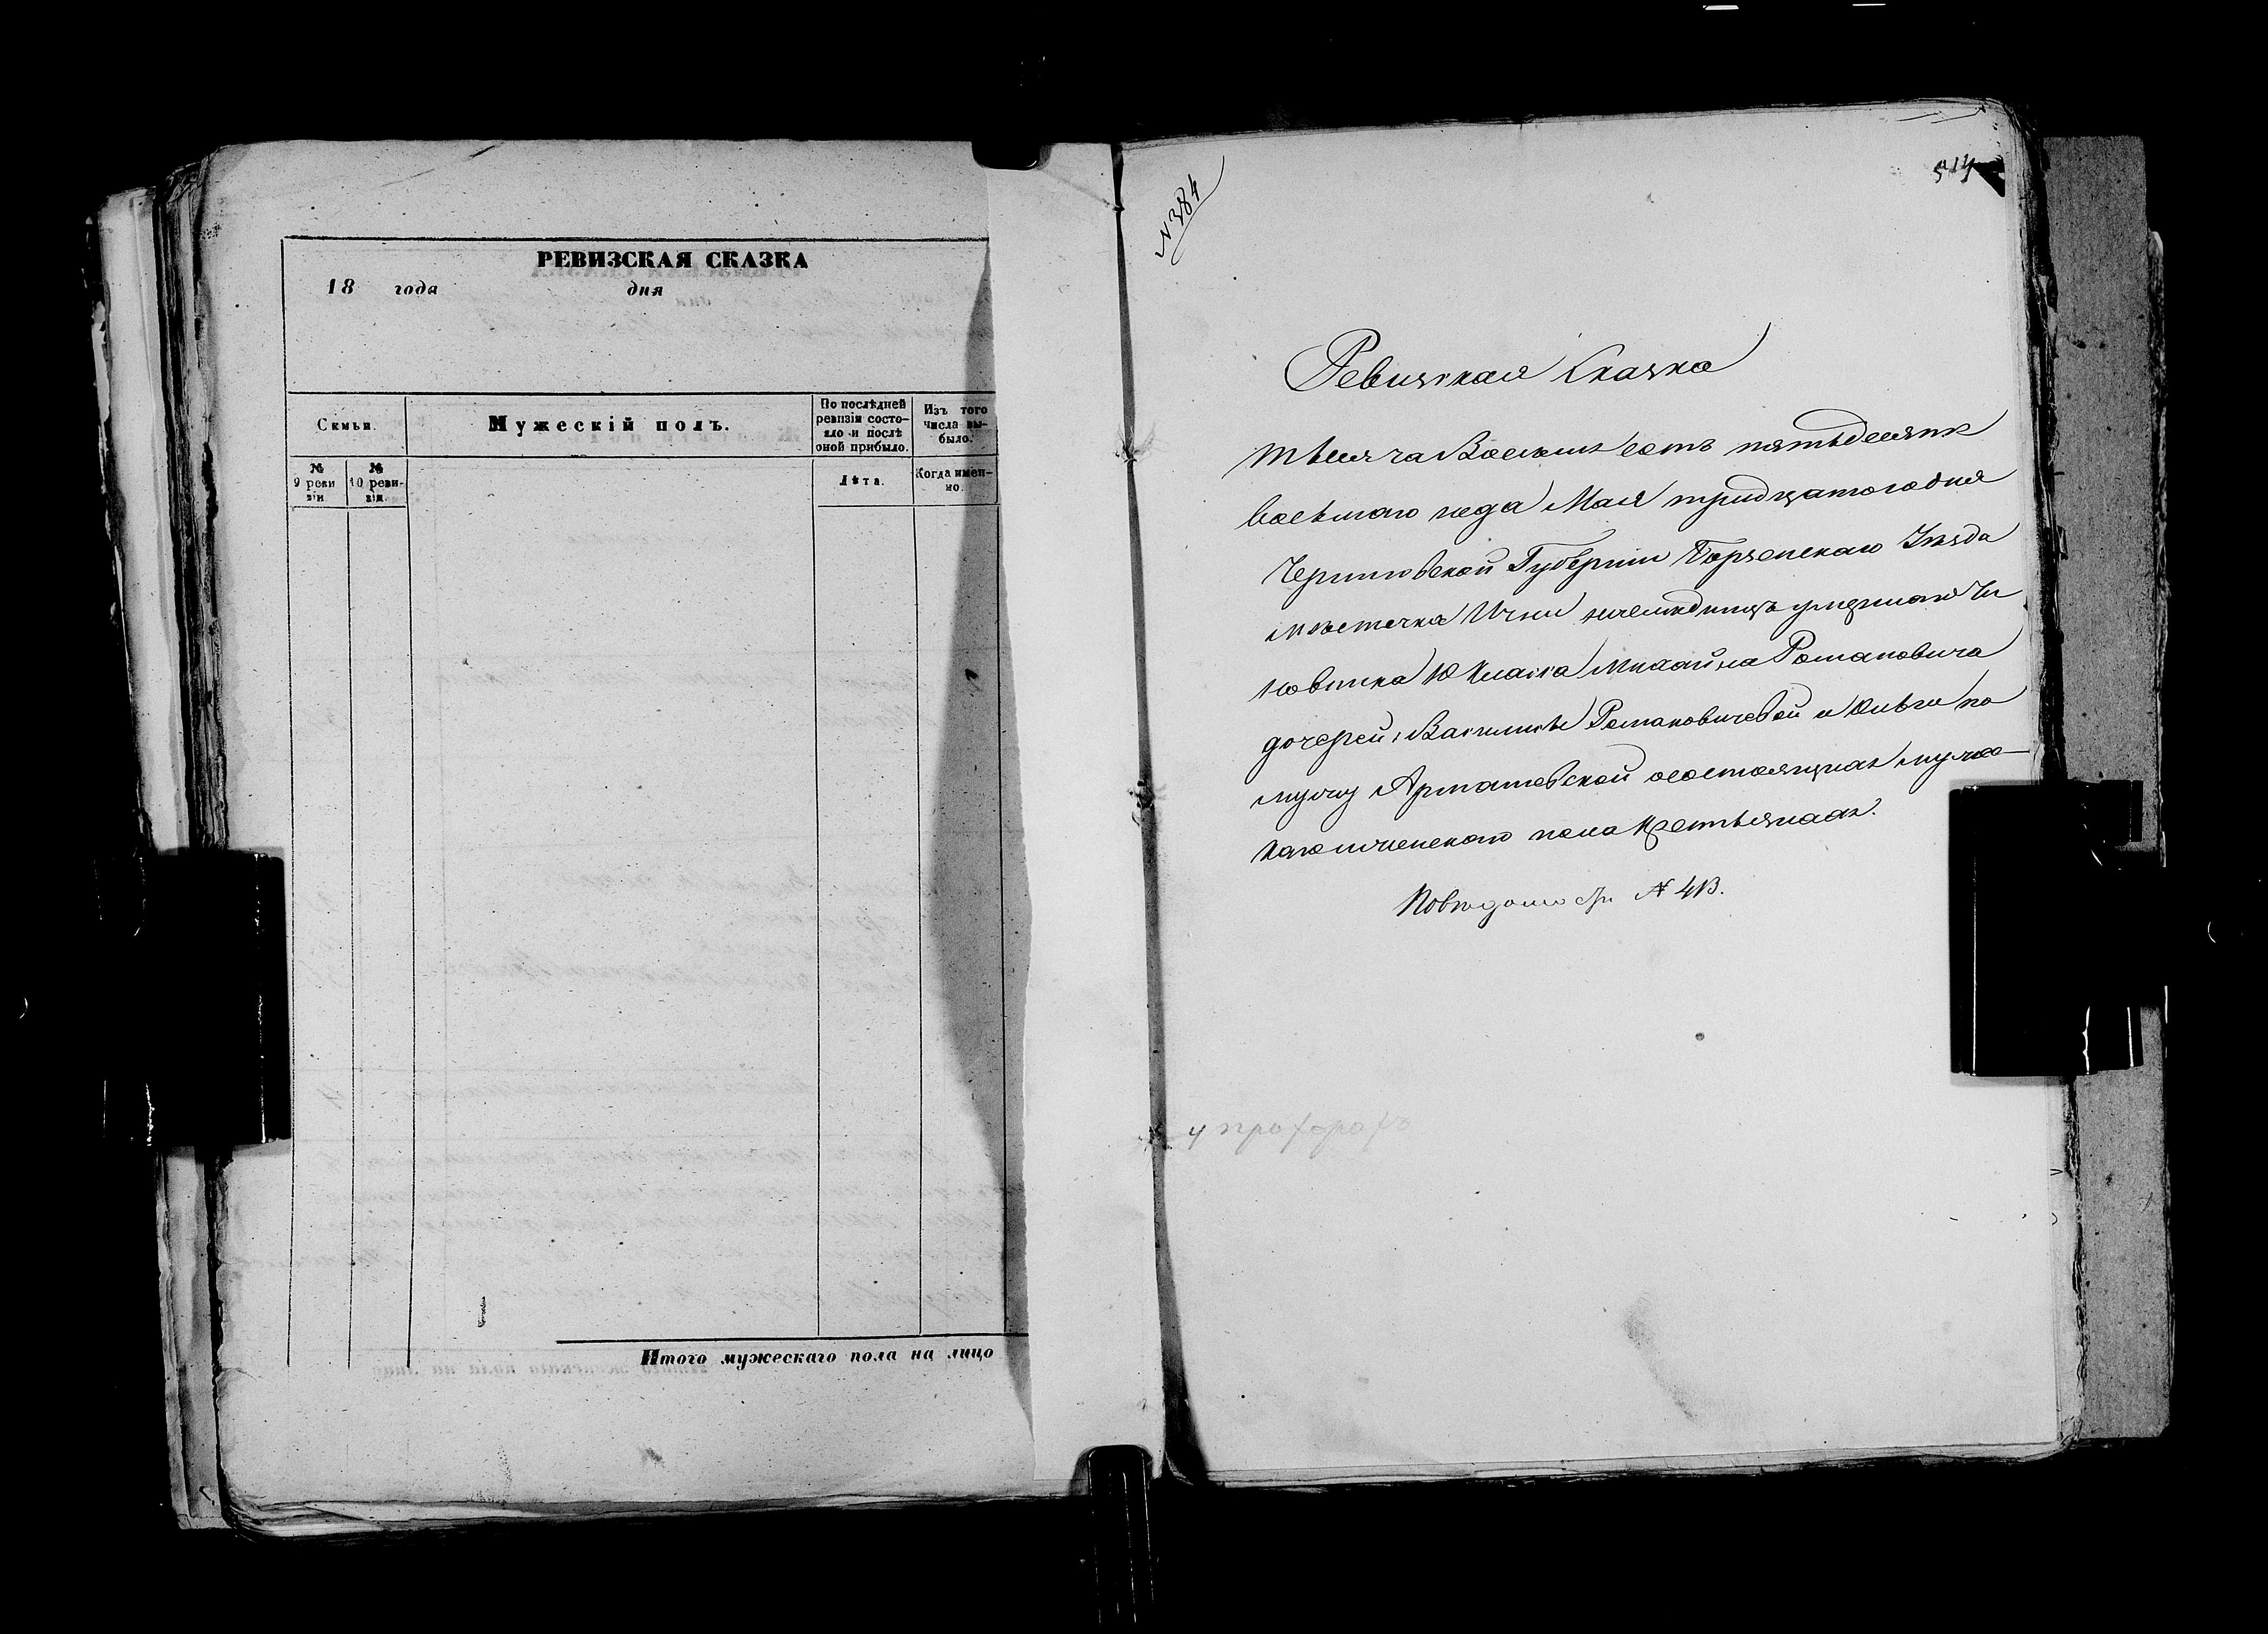 РЕВИЗСКАЯ СКАЗКА
18 года дня
Семьи.
Мужескій полъ.
По послѣдней
ревизіи состо-
яло и послѣ
оной прибыло.
Изъ того
числа вы-
было.
№
9 реви
зіи
№
10 реви-
зіи.
Лѣта.
Когда имен-
но.
Итого мужескаго пола на лицо
№ 384
514
Ревизская Сказка
тысяча восемь сотъ пятьдесятъ
восьмаго года Мая тридцатаго дня
Черниговской Губерніи Борзенскаго Уѣзда
мѣстечка Ични наслѣдницъ умершаго Чи
новника 10 Класса Михайла Романовича
дочерей, Василисы Романовичевой и Ольги по
мужу Арташевской о состоящихъ муже-
ска и женскаго пола Крестьянахъ.
По вѣдомости № 413.